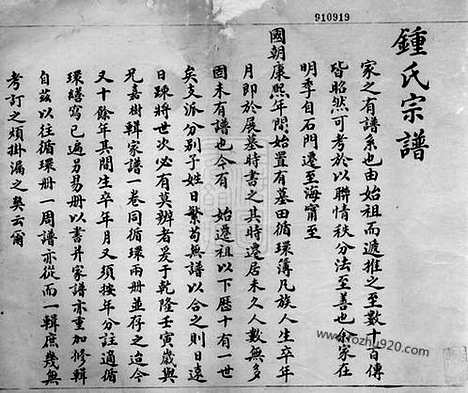 910919
鍾氏宗譜
家之有譜系也由始祖而遞推之至數十百傳
皆昭然可考於以聯情秩分法至善也余家在
明季自石門遷至海甯至
國朝康熙年間始置有墓田循環簿凡族人生卒年
月即於展墓時書之其時遷居未久人數無多
固未有譜也今有 始遷祖以下歷十有一世
矣支派分别子姓日繁苟無譜以合之則日遠
日踈將世次必有莫辨者爰于乾隆壬寅歲與
兄嘉樹輯家譜一卷同循環兩册並存之迨今
又十餘年其間生卒年月又須按年分註適循
環繕寫已遍另易册以書并家譜亦重加修輯
自茲以往循環册一周譜亦從而一輯庶幾無
考訂之煩掛漏之弊云爾
www.fozhu920.com